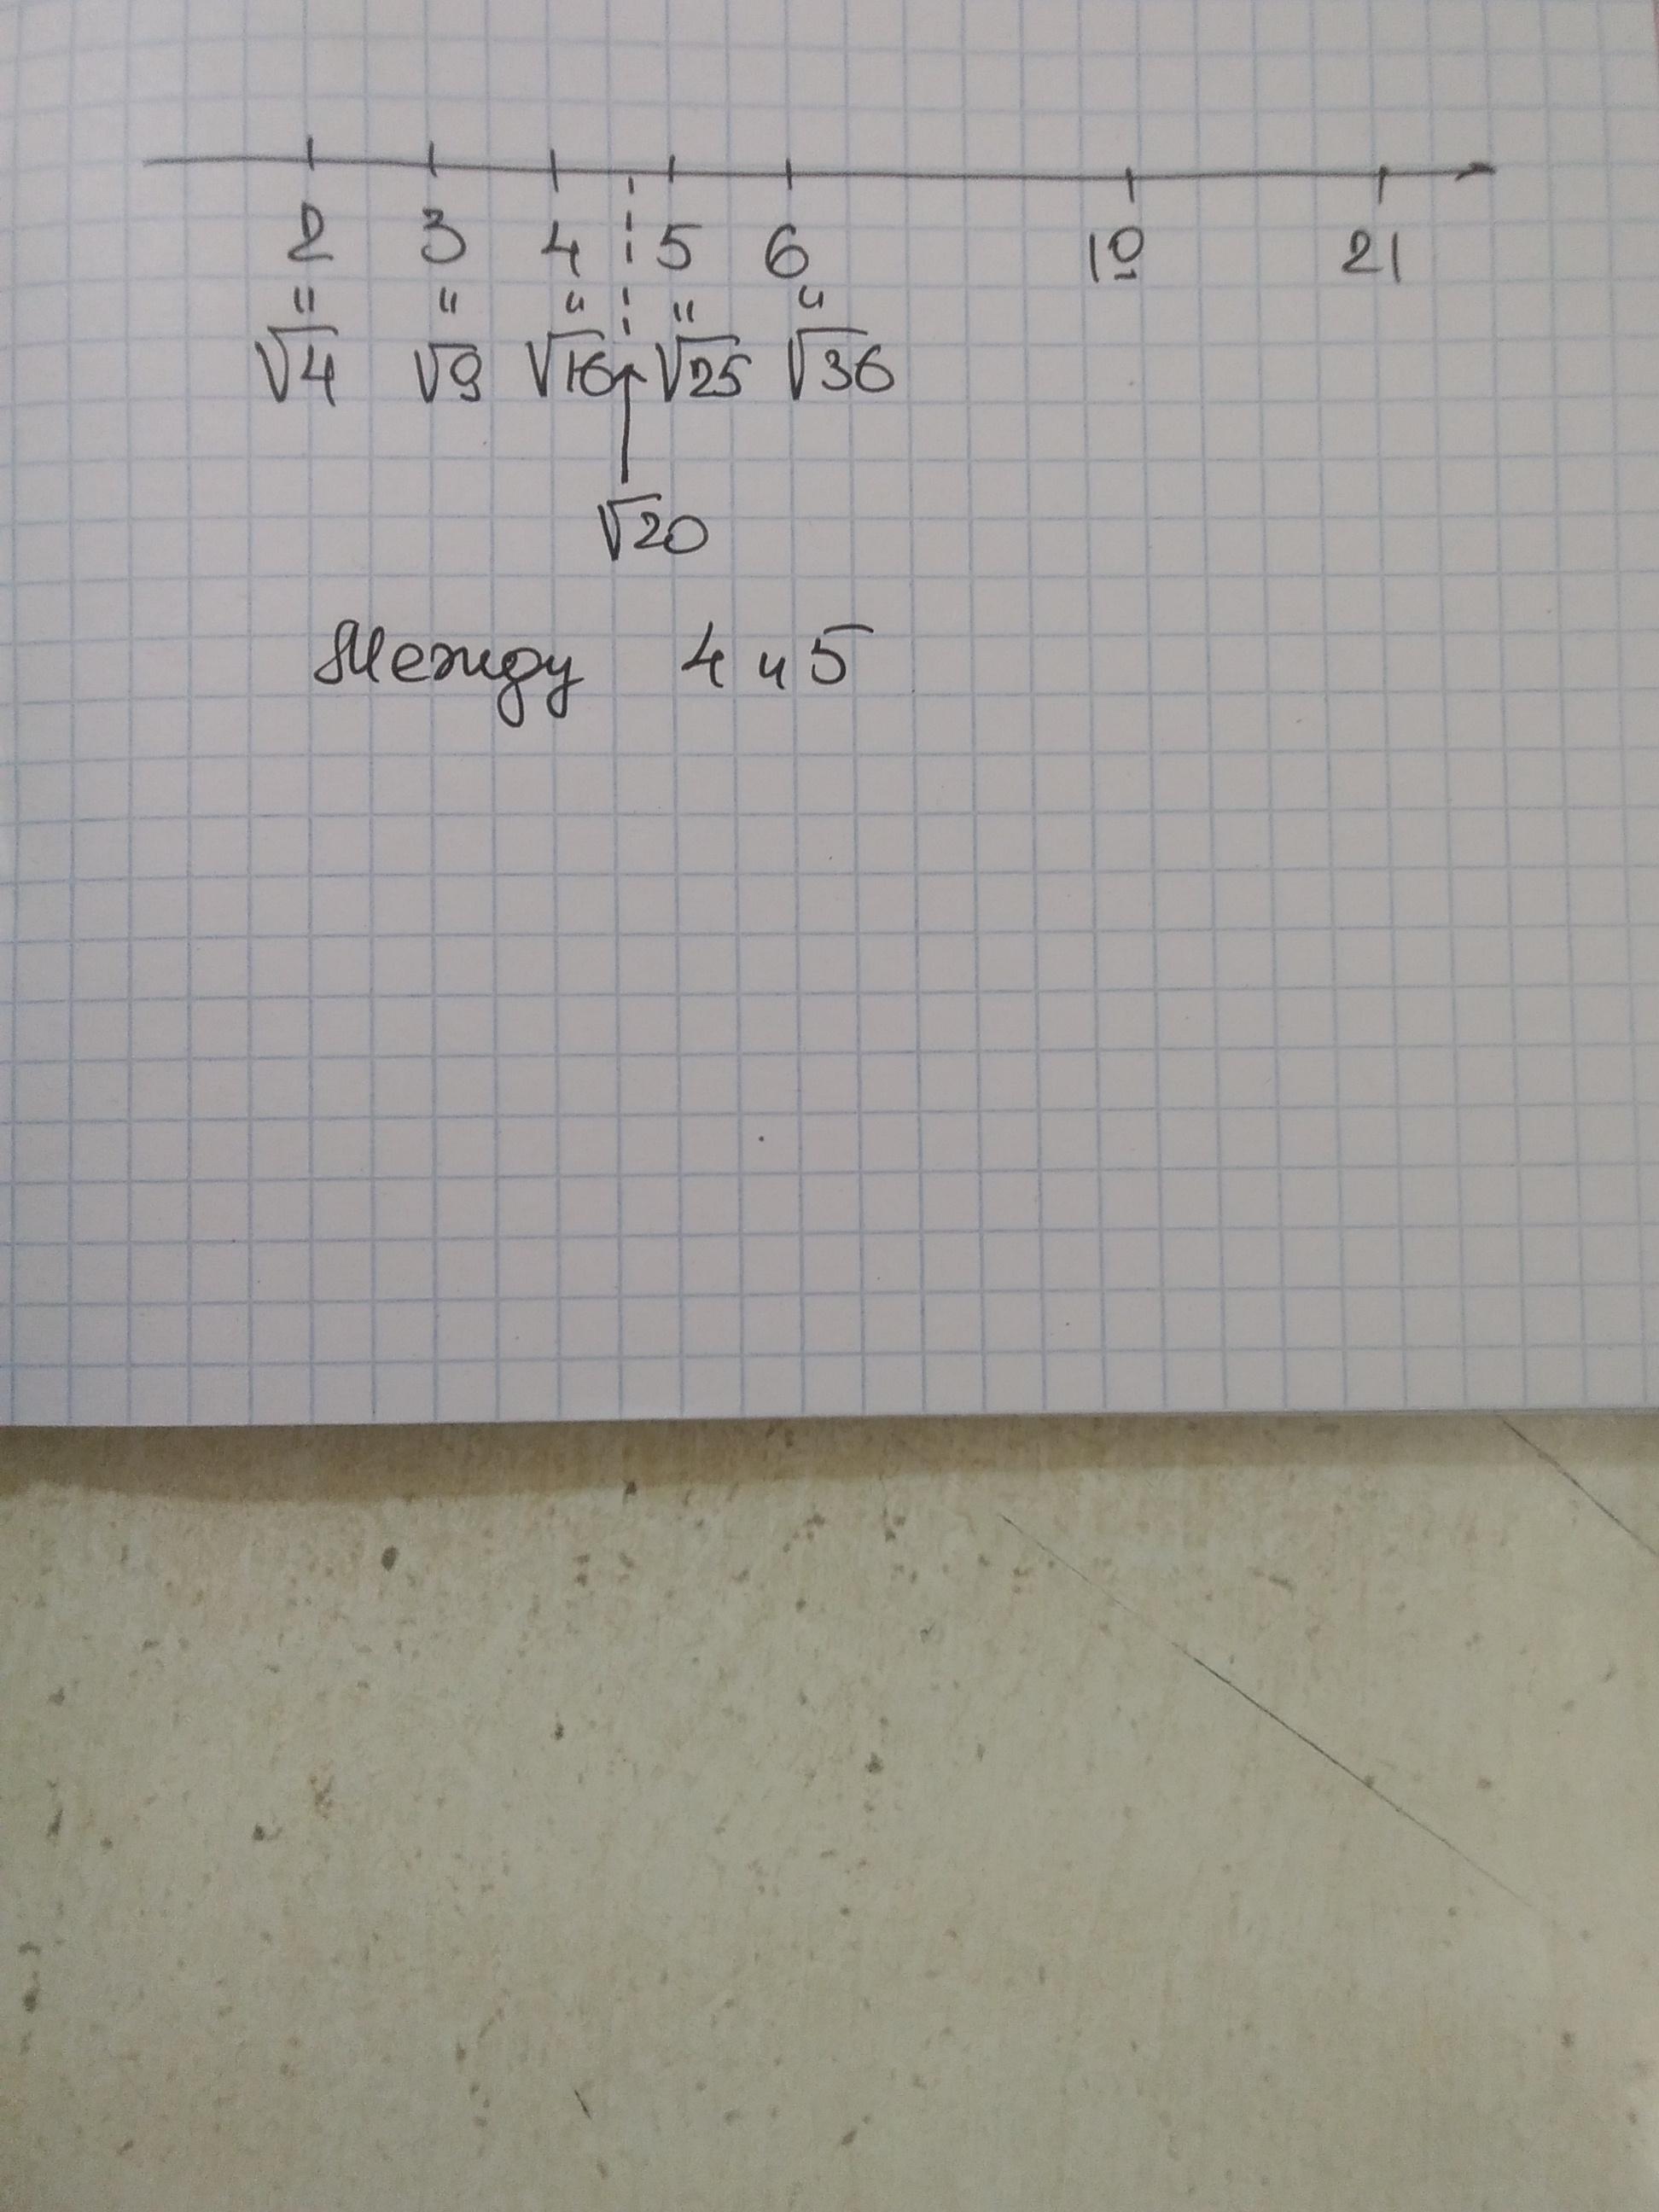 2 3 4 5 6 19 21
" " " " "
√4 √9 √16 √25 √36
√20
Между 4 и 5